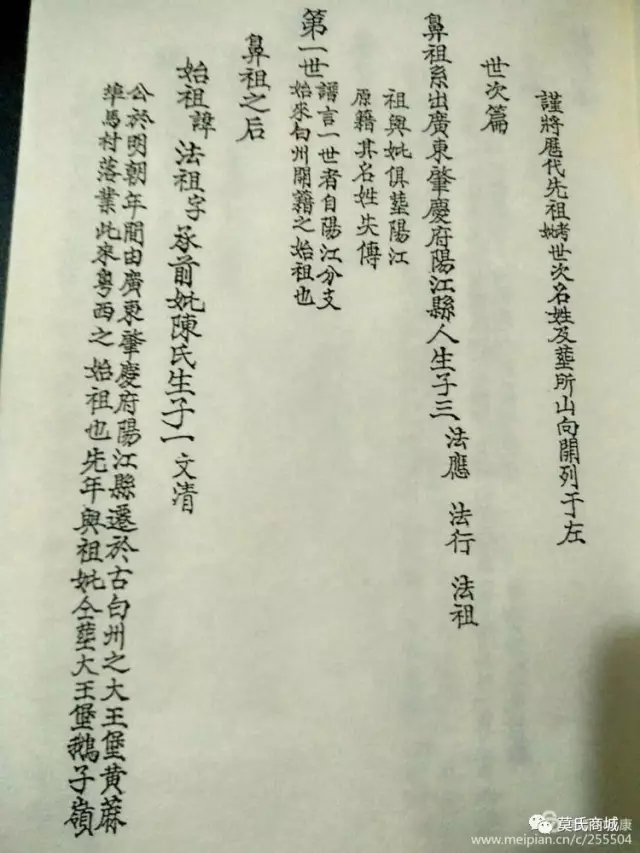 謹將歷代先祖妣世次名姓及塟所山向開列于左
世次篇
鼻祖系出廣東肇慶府陽江縣人生子三 法應 法行 法祖
祖與妣俱塟陽江
原籍其名姓失傳
第一世 譜言一世者自陽江分支
始來白州開籍之始祖也
鼻祖之后
始祖諱 法祖字 承前妣陳氏生子一 文清
公於明朝年間由廣東肇慶府陽江縣遷於古白州之大王堡黄蔴
埠馬村落業此來粵西之 始祖也先年與祖妣仝塟大王堡鵝子嶺
莫氏商城
康
www.meipian.cn/c/255504